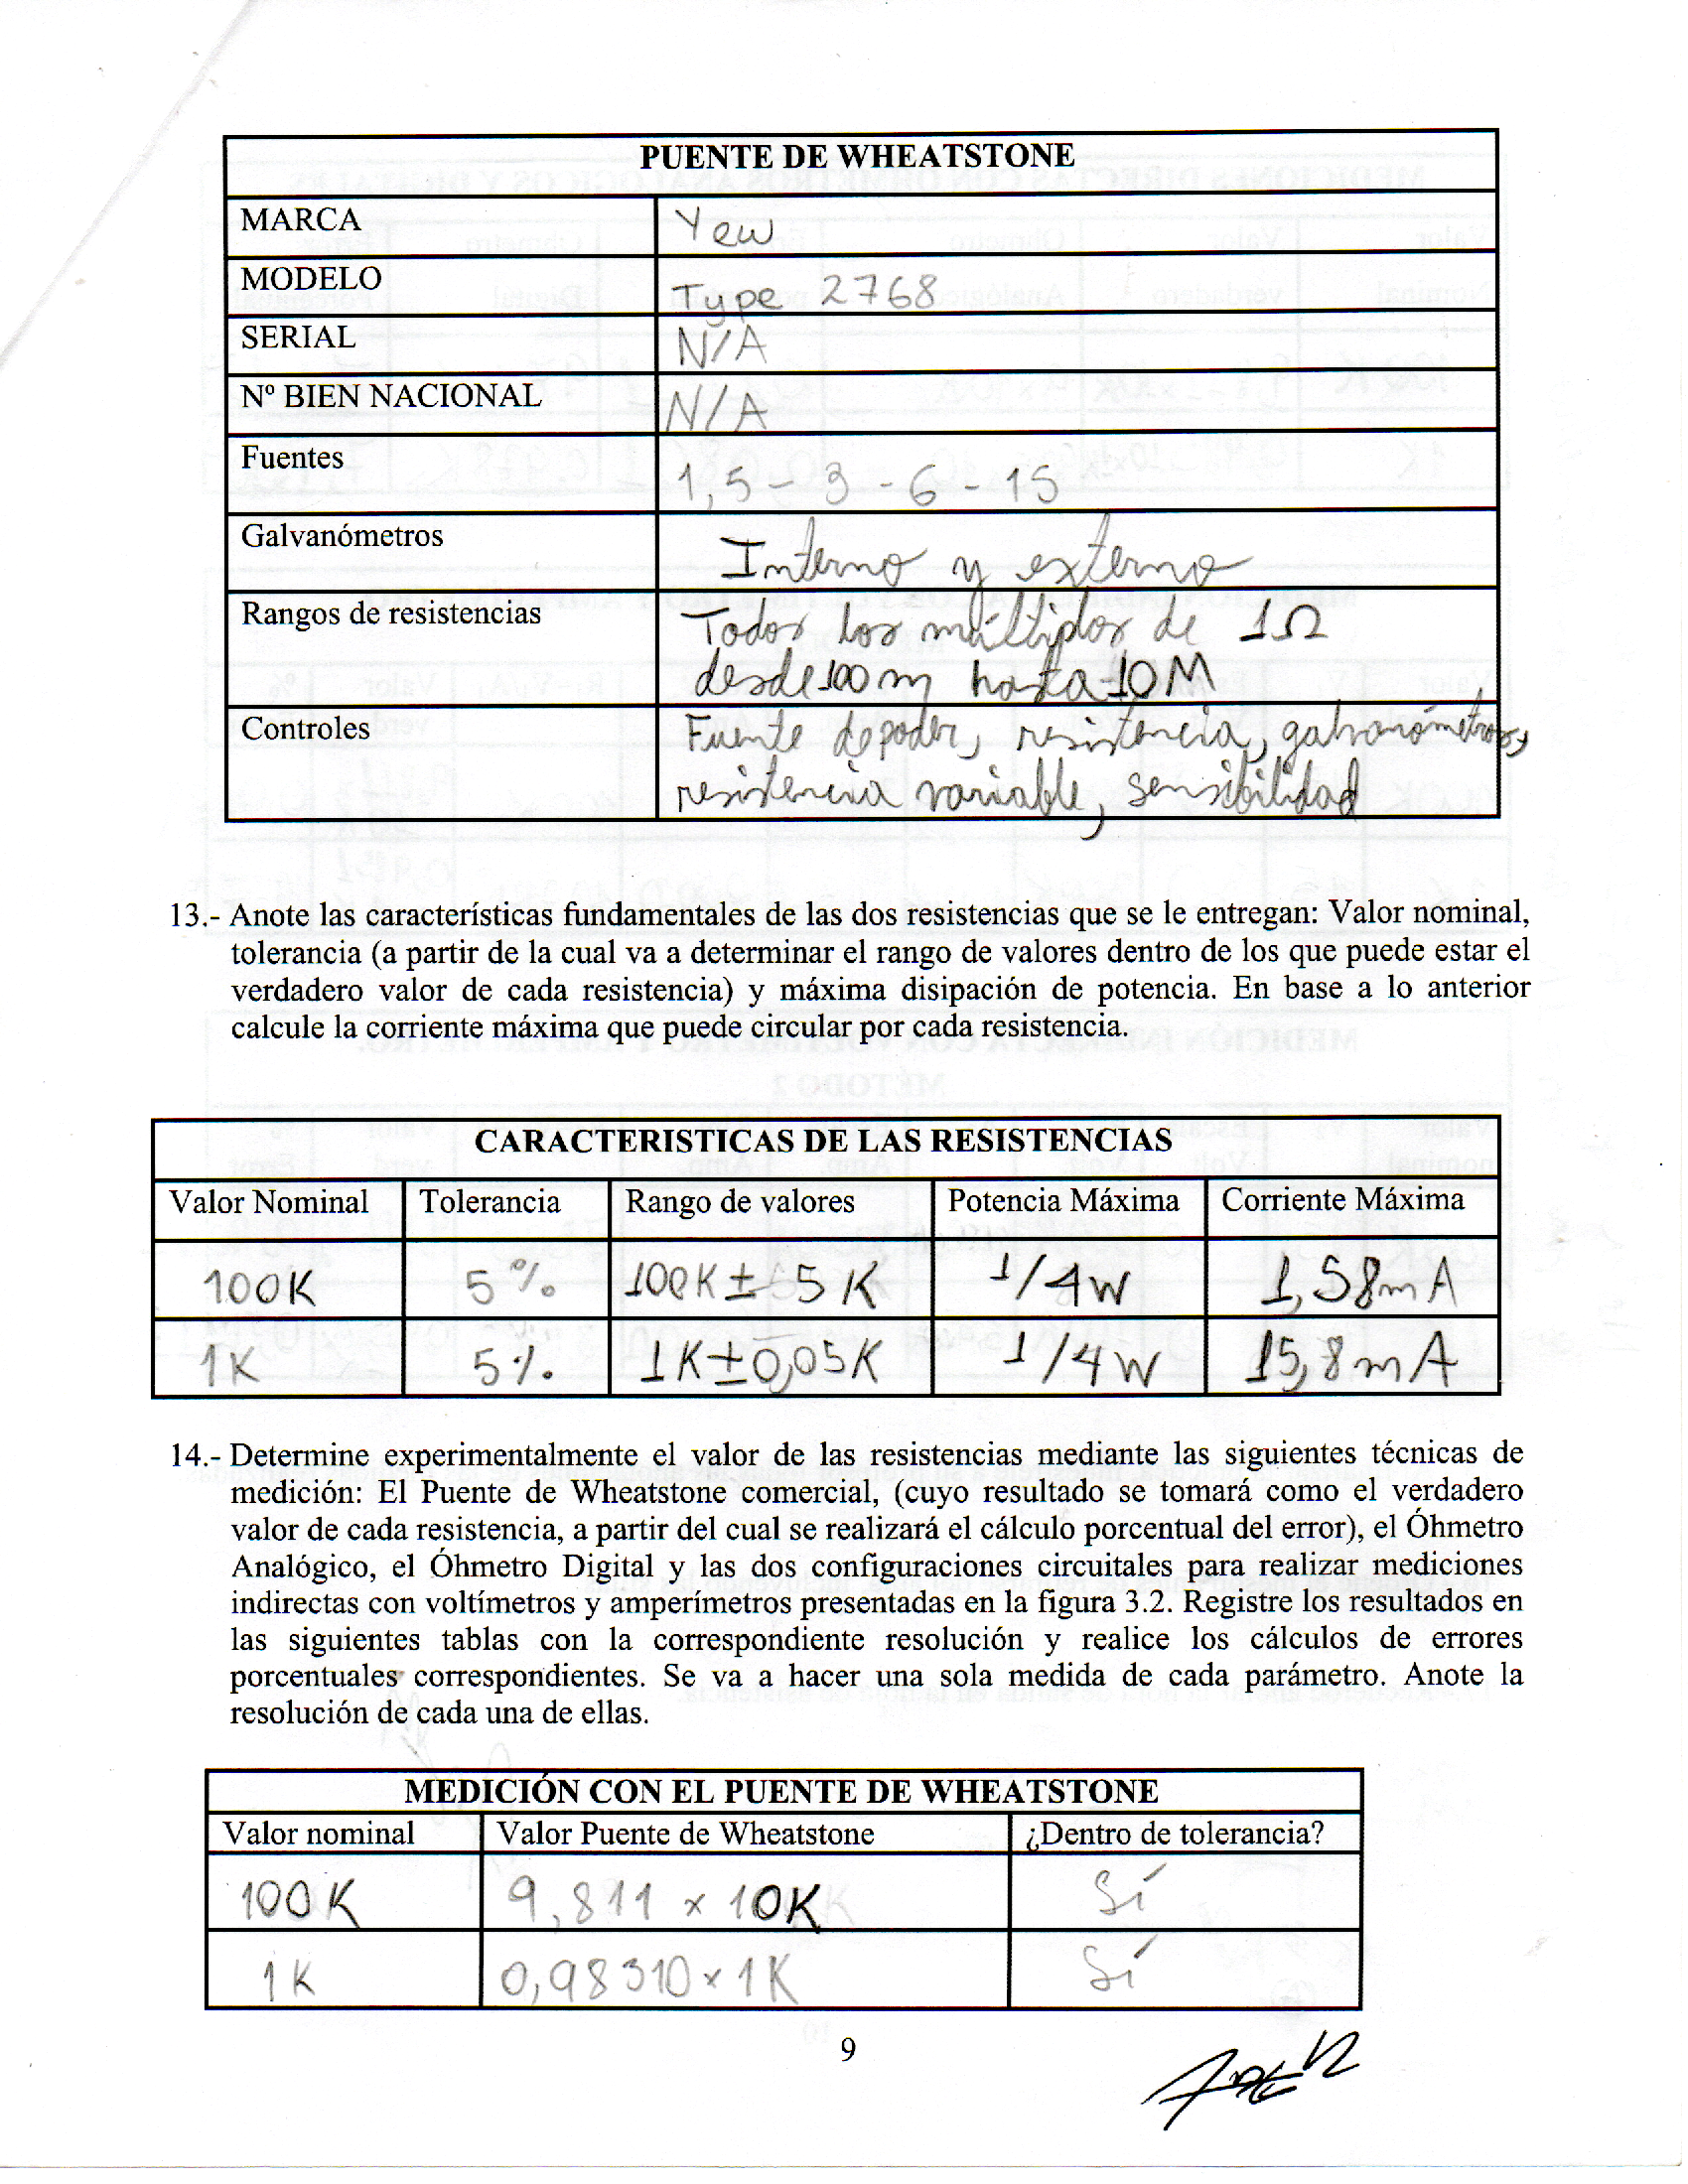 PUENTE DE WHEATSTONE
MARCA Yew
MODELO Type 2768
SERIAL N/A
Nº BIEN NACIONAL N/A
Fuentes 1,5 - 3 - 6 - 15
Galvanómetros Interno y externo
Rangos de resistencias Todos los múltiplos de 1Ω
desde 100 m hasta 10M
Controles Fuente de poder, resistencia, galvanómetros,
resistencia variable, sensibilidad
13.- Anote las características fundamentales de las dos resistencias que se le entregan: Valor nominal,
tolerancia (a partir de la cual va a determinar el rango de valores dentro de los que puede estar el
verdadero valor de cada resistencia) y máxima disipación de potencia. En base a lo anterior
calcule la corriente máxima que puede circular por cada resistencia.
CARACTERISTICAS DE LAS RESISTENCIAS
Valor Nominal Tolerancia Rango de valores Potencia Máxima Corriente Máxima
100K 5% 100K ± 5K 1/4W 1,58mA
1K 5% 1K±0,05K 1/4W 15,8mA
14.- Determine experimentalmente el valor de las resistencias mediante las siguientes técnicas de
medición: El Puente de Wheatstone comercial, (cuyo resultado se tomará como el verdadero
valor de cada resistencia, a partir del cual se realizará el cálculo porcentual del error), el Óhmetro
Analógico, el Óhmetro Digital y las dos configuraciones circuitales para realizar mediciones
indirectas con voltímetros y amperímetros presentadas en la figura 3.2. Registre los resultados en
las siguientes tablas con la correspondiente resolución y realice los cálculos de errores
porcentuales correspondientes. Se va a hacer una sola medida de cada parámetro. Anote la
resolución de cada una de ellas.
MEDICIÓN CON EL PUENTE DE WHEATSTONE
Valor nominal Valor Puente de Wheatstone ¿Dentro de tolerancia?
100K 9,811 x 10K Sí
1K 0,98310 x 1K Sí
9